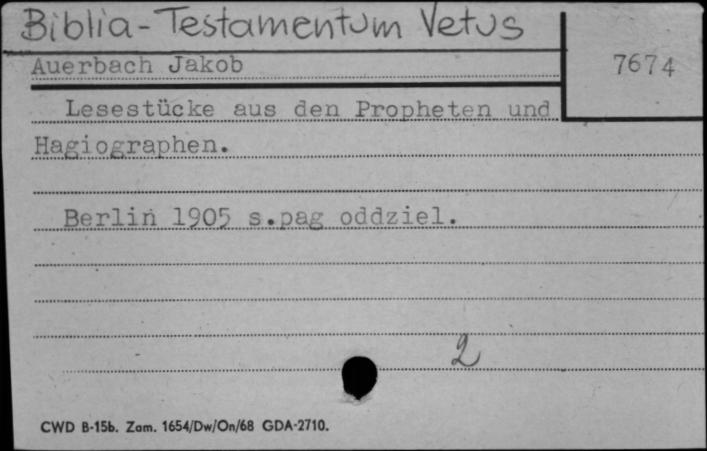 Biblia-Testamentum Vetus
Auerbach Jakob
7674
Lesestücke aus den Propheten und
Hagiographen.
Berlin 1905 s.pag oddziel.
2
CWD B-15b. Zam. 1654/Dw/On/68 GDA-2710.